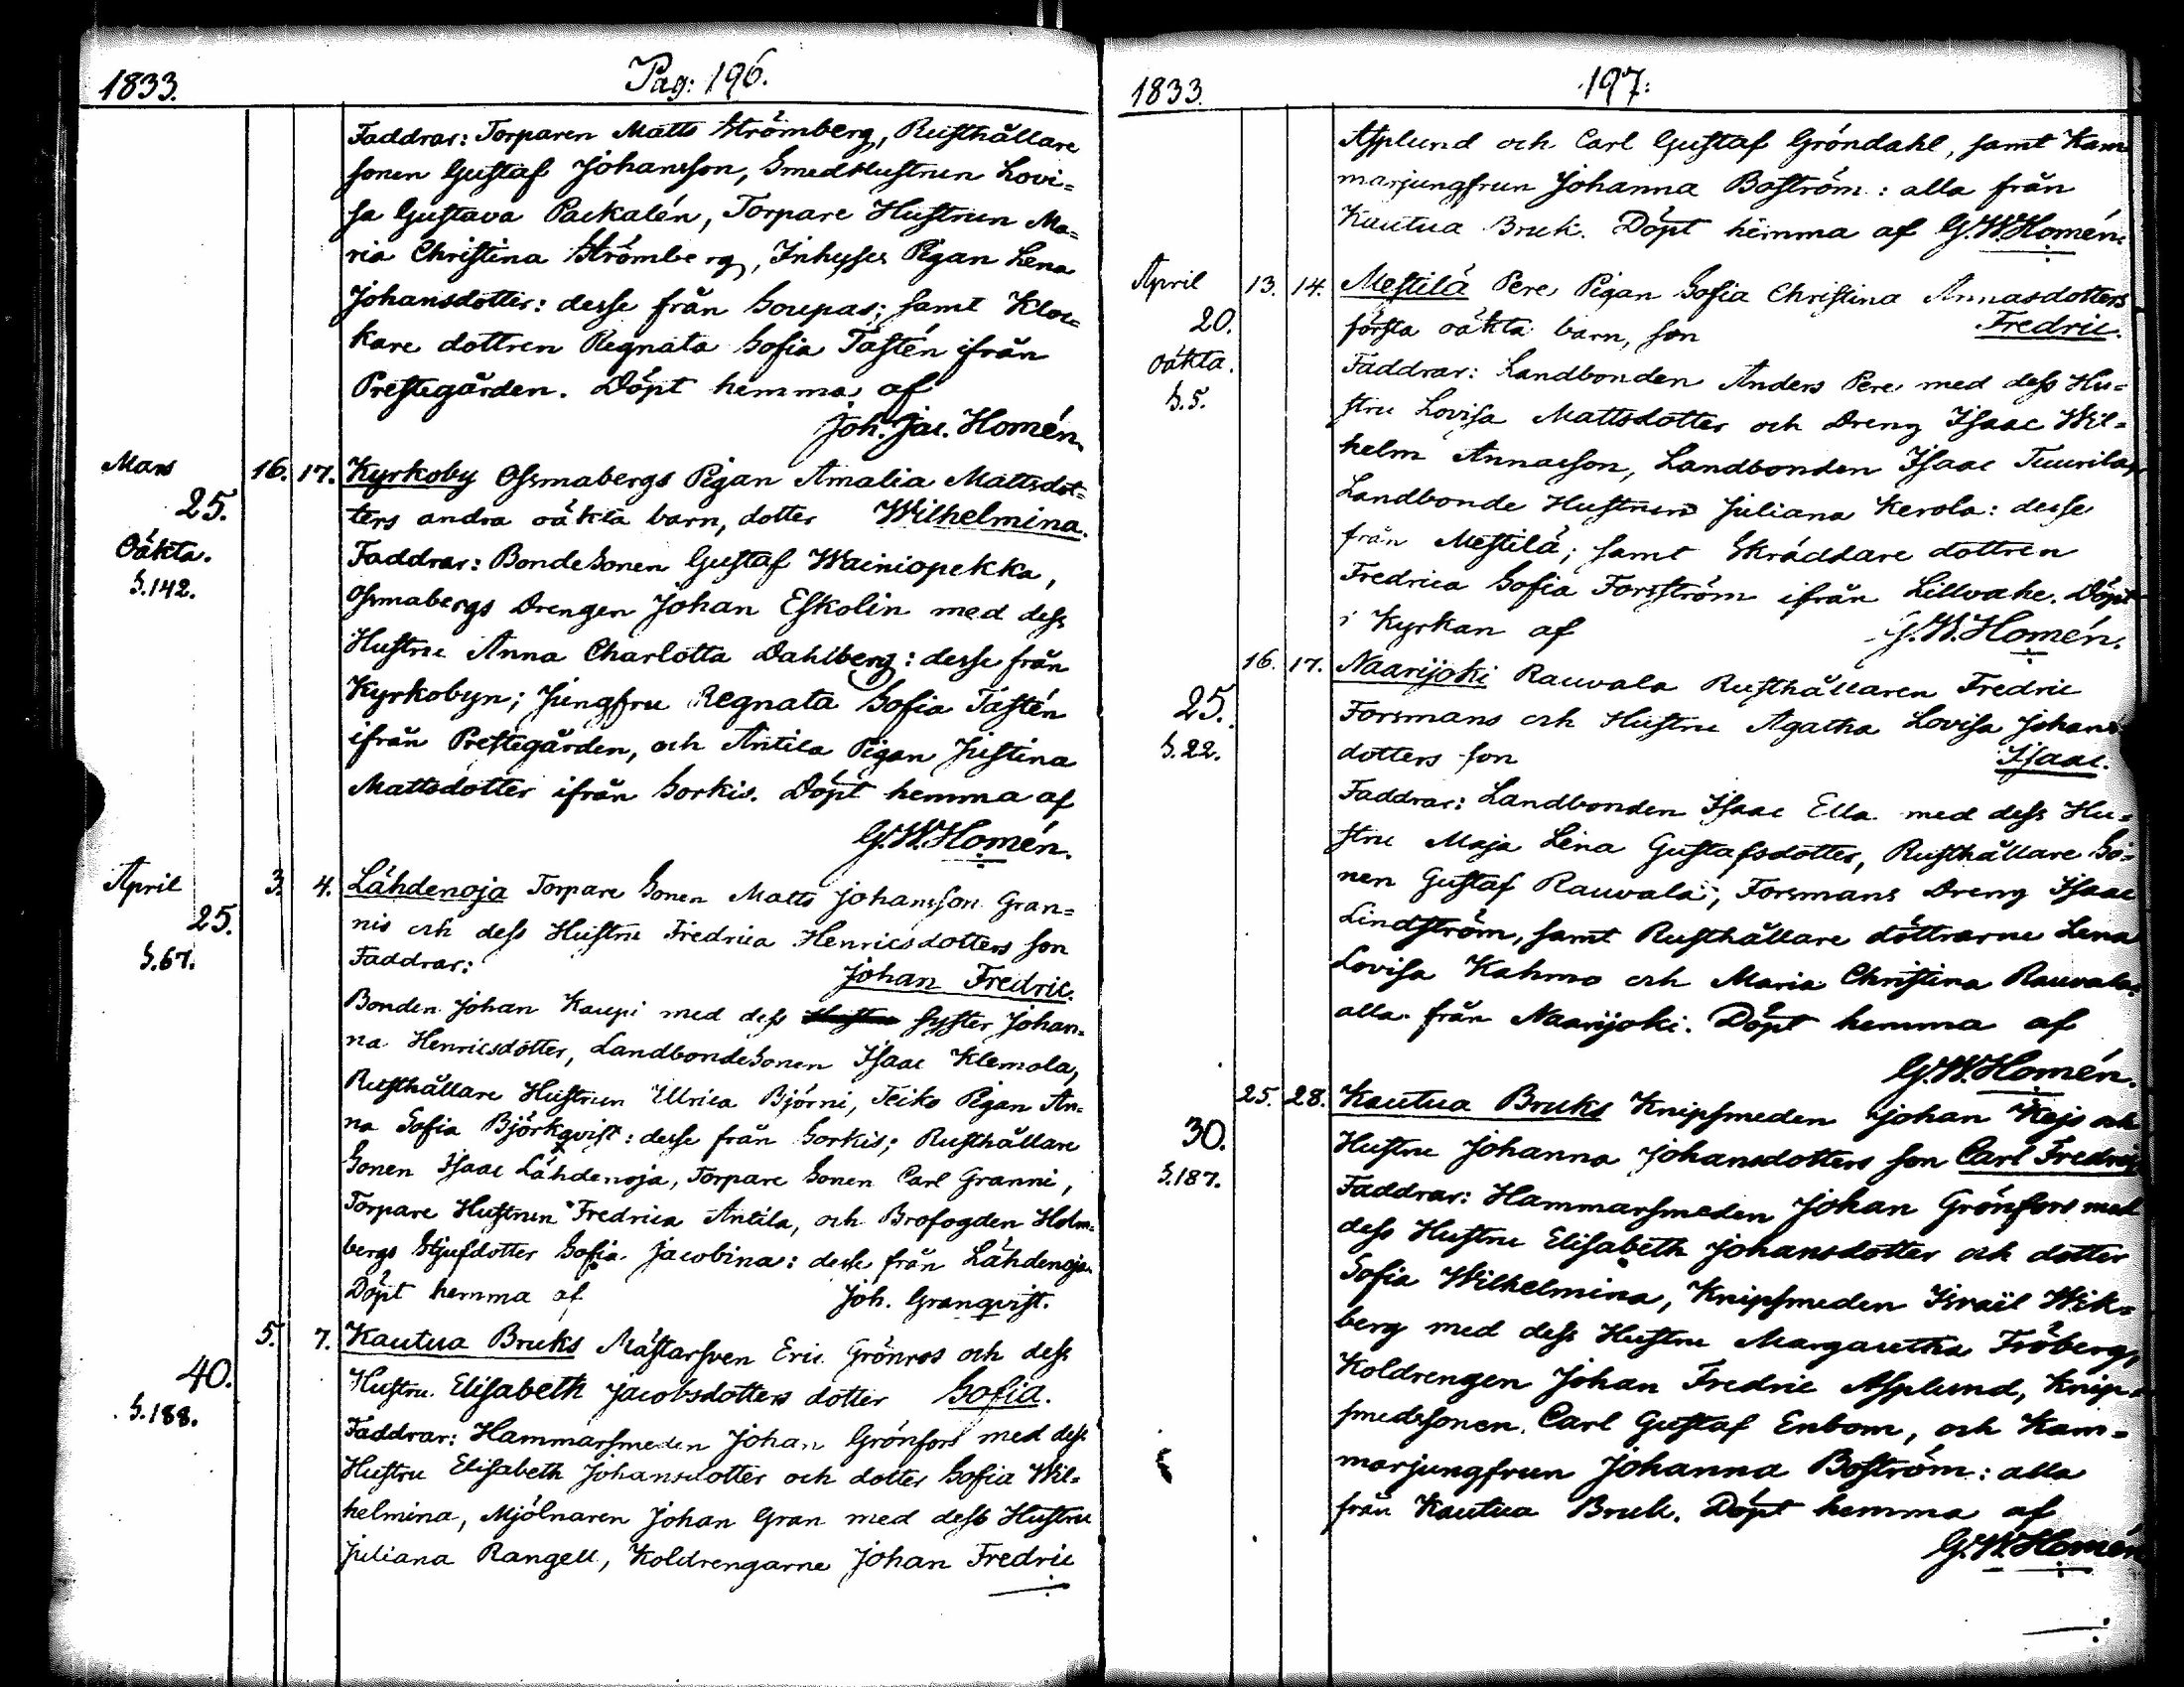 1833.
Pag: 196.
Faddrar: Torparen Matts Strömberg, Rusthållare
sonen Gustaf Johansson, Smedhustrun Lovi=
sa Gustava Packalén, Torpare Hustrun Ma=
ria Christina Strömberg, Inhyses Pigan Lena
Johansdotter: desse från Soupas; samt Kloc=
kare dottren Regnata Sofia Tastén ifrån
Prestegården. Döpt hemma af
Joh. Jac. Homén.
Mars 16. 17. Kyrkoby Ossmabergs Pigan Amalia Mattsdot=
25. ters andra oäkta barn, dotter Wilhelmina.
Oäkta. Faddrar: Bondesonen Gustaf Wainiopekka,
S.142. Ossmabergs Drengen Johan Eskolin med dess
Hustru Anna Charlotta Dahlberg: desse från
Kyrkobyn; Jungfru Regnata Sofia Tastén
ifrån Prestegården, och Antila Pigan Justina
Mattsdotter ifrån Sorkis. Döpt hemma af
G.W.Homén.
April 3. 4. Lähdenoja Torpare Sonen Matts Johansson Gran=
25. nis och dess Hustru Fredrica Henricsdotters son
S.67. Faddrar: Johan Fredric.
Bonden Johan Kaupi med dess syster Johan=
na Henricsdotter, Landbondesonen Isaac Klemola,
Rusthållare Hustrun Ulrica Björni, Teiko Pigan An=
na Sofia Björkqvist: desse från Sorkis; Rusthållare
Sonen Isaac Lähdenoja, Torpare Sonen Carl Granni,
Torpare Hustrun Fredrica Antila, och Brofogden Holm=
bergs Stjufdotter Sofia Jacobina: desse från Lähdenoja.
Döpt hemma af Joh. Granqvist.
5. 7. Kautua Bruks Mästarsven Eric Grönros och dess
40. Hustru Elisabeth Jacobsdotters dotter Sofia.
S.188. Faddrar: Hammarsmeden Johan Grönfors med dess
Hustru Elisabeth Johansdotter och dotter Sofia Wil=
helmina, Mjölnaren Johan Gran med dess Hustru
Juliana Rangell, Koldrengarne Johan Fredric
1833.
197.
Asplund och Carl Gustaf Gröndahl, samt Kam
marjungfrun Johanna Boström: alla från
Kautua Bruk. Döpt hemma af G.W.Homén.
April 13. 14. Mestilä Pere Pigan Sofia Christina Annasdotters
20. första oäkta barn, son Fredric.
oäkta. Faddrar: Landbonden Anders Pere med dess Hu=
S.5. stru Lovisa Mattsdotter och Dreng Isaac Wil=
helm Annaeson, Landbonden Isaac Tuurila,
Landbonde Hustrun Juliana Kerola: desse
från Mestilä; samt Skräddare dottren
Fredrica Sofia Forsström ifrån Lillvahe. Döpt
i Kyrkan af G.W.Homén.
16. 17. Naarijoki Rauvala Rusthållaren Fredric
25. Forsmans och Hustru Agatha Lovisa Johans
S.22. dotters son Isaac.
Faddrar: Landbonden Isaac Ella med dess Hu=
stru Maja Lena Gustafsdotter, Rusthållare So=
nen Gustaf Rauvala, Forsmans Dreng Isaac
Lindström, samt Rusthållare döttrarne Lena
Lovisa Kahmo och Maria Christina Rauvala:
alla från Naarijoki. Döpt hemma af
G.W.Homén.
25. 28. Kautua Bruks Knipsmeden Johan Kejs och
30. Hustru Johanna Johansdotters son Carl Fredric
S.187. Faddrar: Hammarsmeden Johan Grönfors med
dess Hustru Elisabeth Johansdotter och dotter
Sofia Wilhelmina, Knipsmeden Israel Wik=
berg med dess Hustru Margaretha Fröberg,
Koldrengen Johan Fredric Asplund, Knip=
smedssonen Carl Gustaf Enbom, och Kam=
marjungfrun Johanna Boström: alla
från Kautua Bruk. Döpt hemma af
G.W.Homén